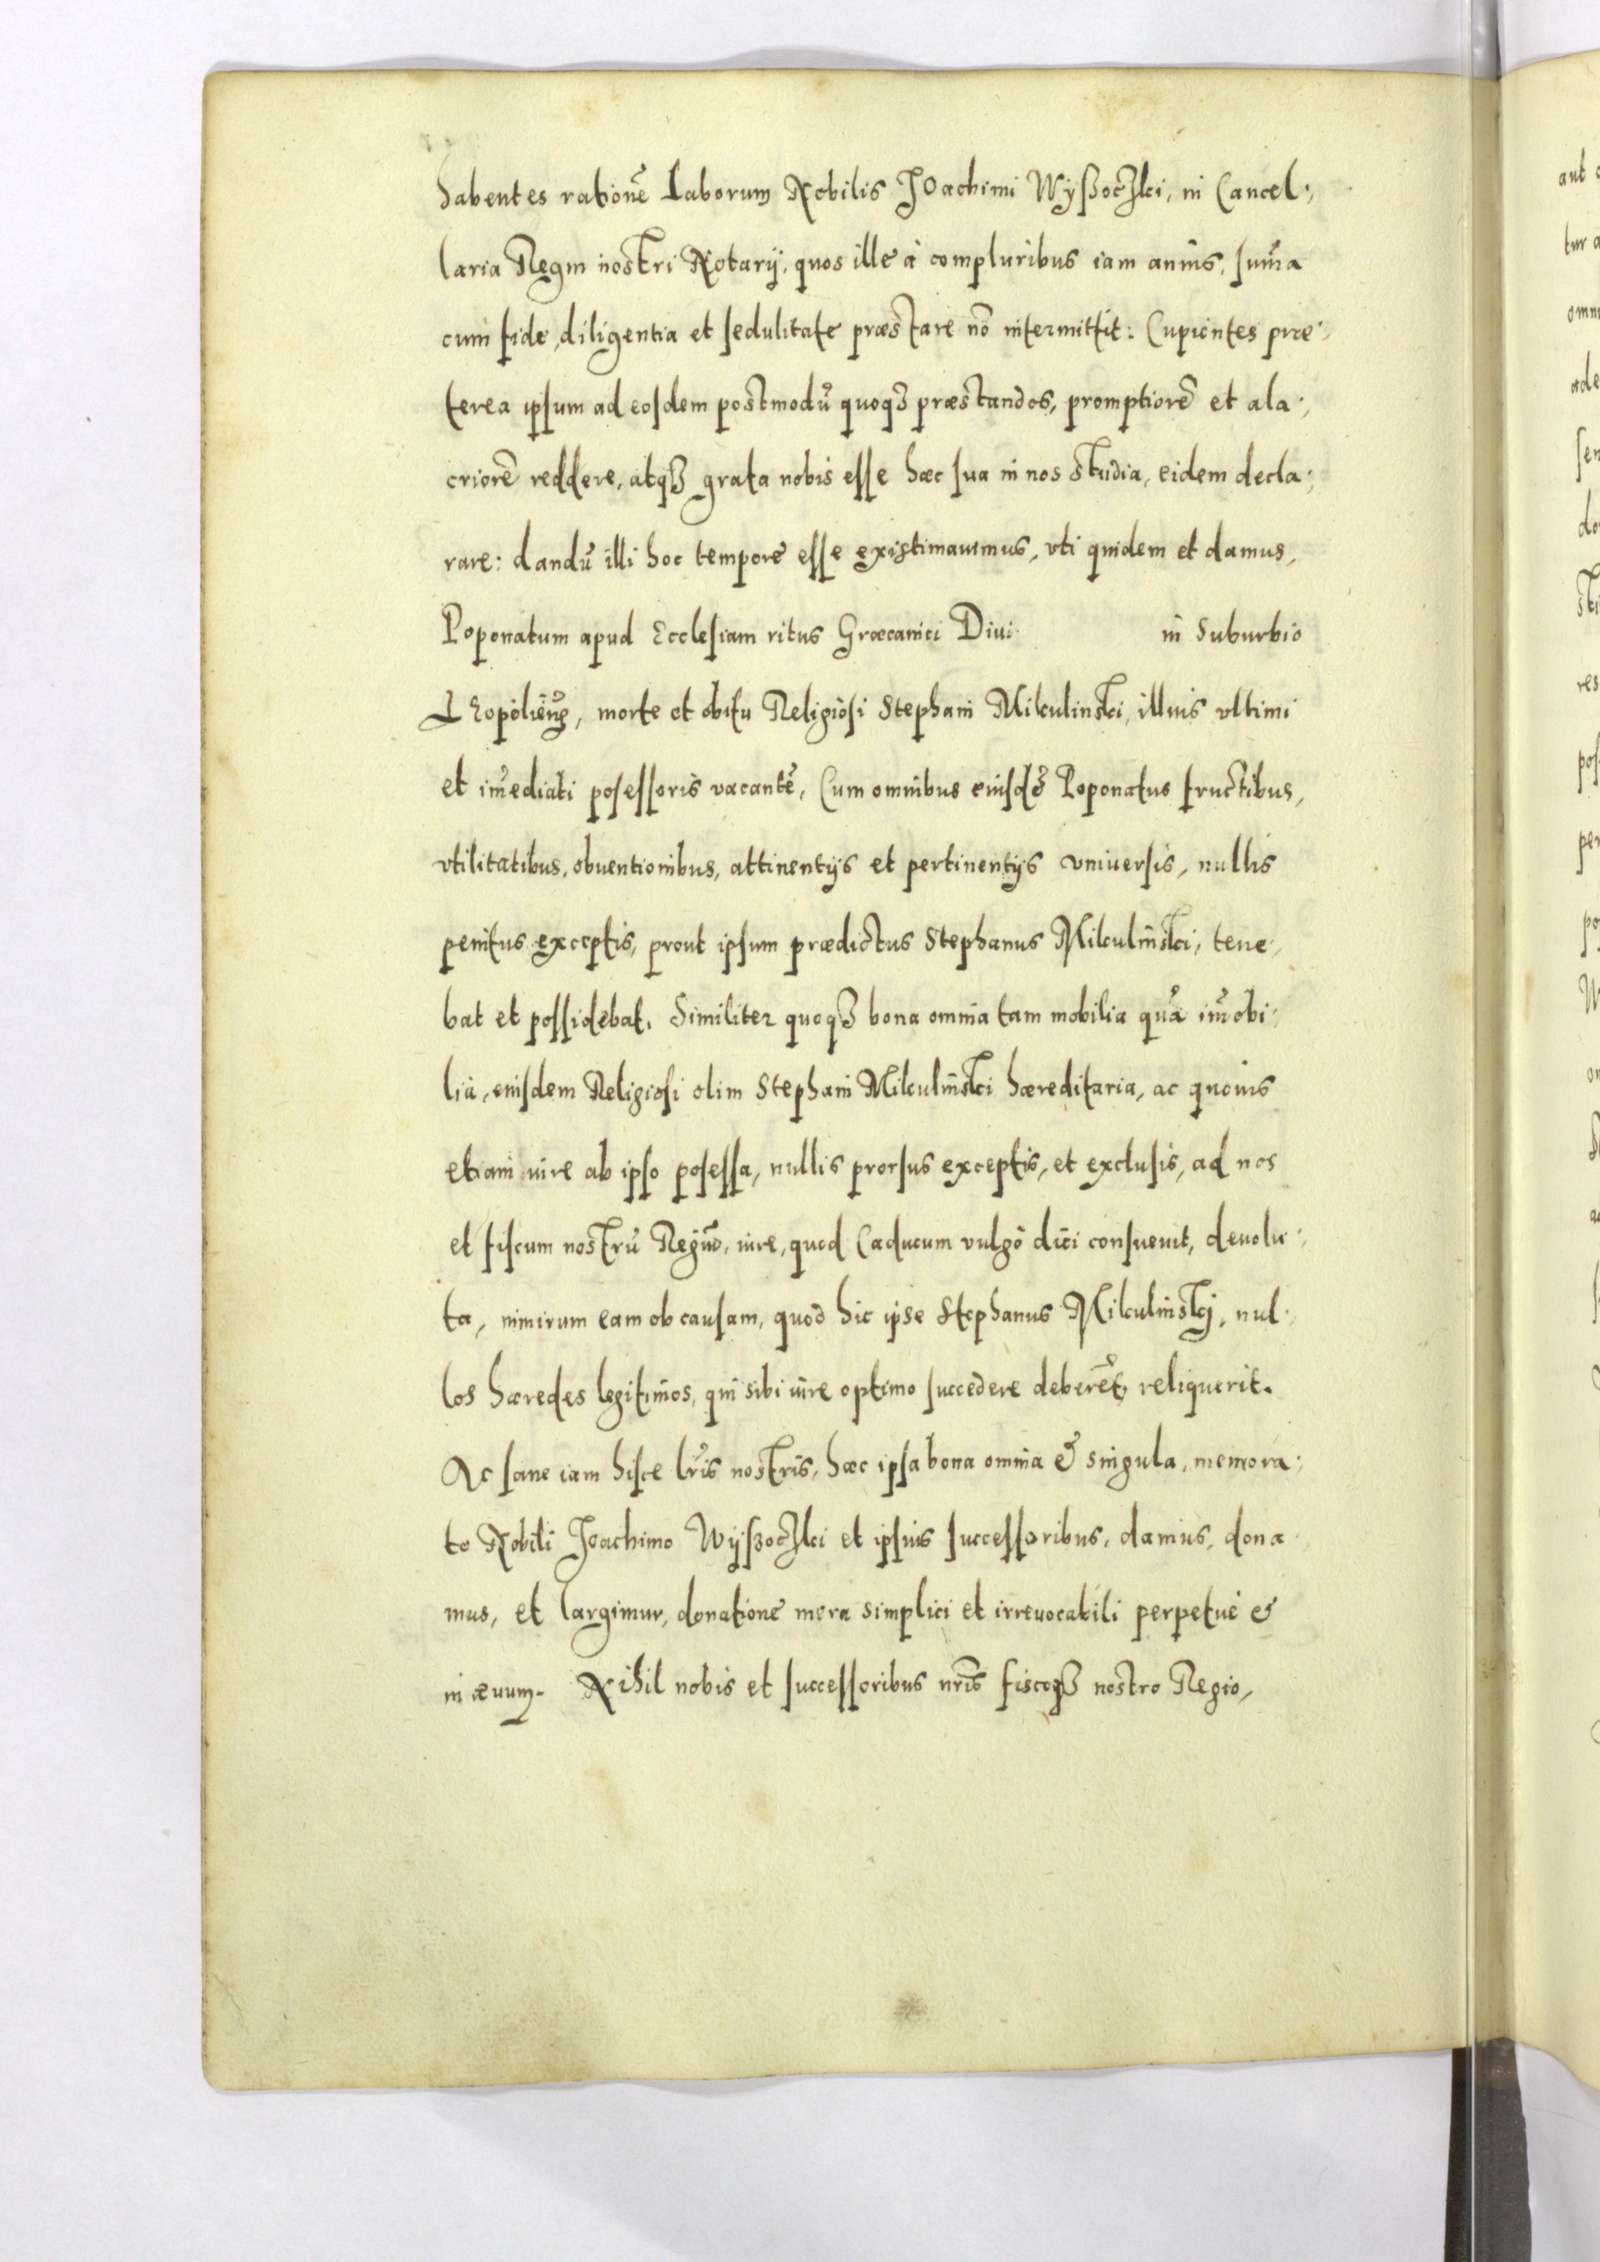 habentes rationē Laborum Nobilis Joachimi Wyßoczki, in Cancel:
laria Regni nostri Notarij, quos ille à compluribus iam annis, sum̄a
cum fide, diligentia et sedulitate præstare nō intermittit: Cupientes præ:
terea ipsum ad eosdem postmodū quoqꝫ præstandos, promptiorē et ala:
criorē reddere, atqꝫ grata nobis esse hæc sua in nos studia, eidem decla:
rare: dandū illi hoc tempore esse existimauimus, vti quidem et damus,
Poponatum apud Ecclesiam ritus Græcanici Diui in Suburbio
Leopolieñ, morte et obitu Religiosi Stephani Mikulinski, illius vltimi
et im̄ediati posessoris vacantē, Cum omnibus eiusdē Poponatus fructibus,
vtilitatibus, obuentionibus, attinentijs et pertinentijs vniuersis, nullis
penitus exceptis, prout ipsum prædictus Stephanus Mikulinski, tene:
bat et possidebat. Similiter quoqꝫ bona omnia tam mobilia quā im̄obi:
lia, eiusdem Religiosi olim Stephani Mikulinski hæreditaria, ac quouis
etiam iure ab ipso posessa, nullis prorsus exceptis, et exclusis, ad nos
et fiscum nostrū Regiū, iure, quod Caducum vulgò dici consueuit, deuolu:
ta, nimirum eam ob causam, quod hic ipse Stephanus Mikulinskj, nul:
los hæredes legitimos, qui sibi iure optimo succedere deberēt, reliquerit.
Ac sane iam hisce lr̄is nostris, hæc ipsa bona omnia & singula, memora:
to Nobili Joachimo Wyßoczki et ipsius successoribus, damus, dona:
mus, et largimur, donatione mera simplici et irreuocabili perpetuè &
in æuum. Nihil nobis et successoribus nr̄is fiscoqꝫ nostro Regio,